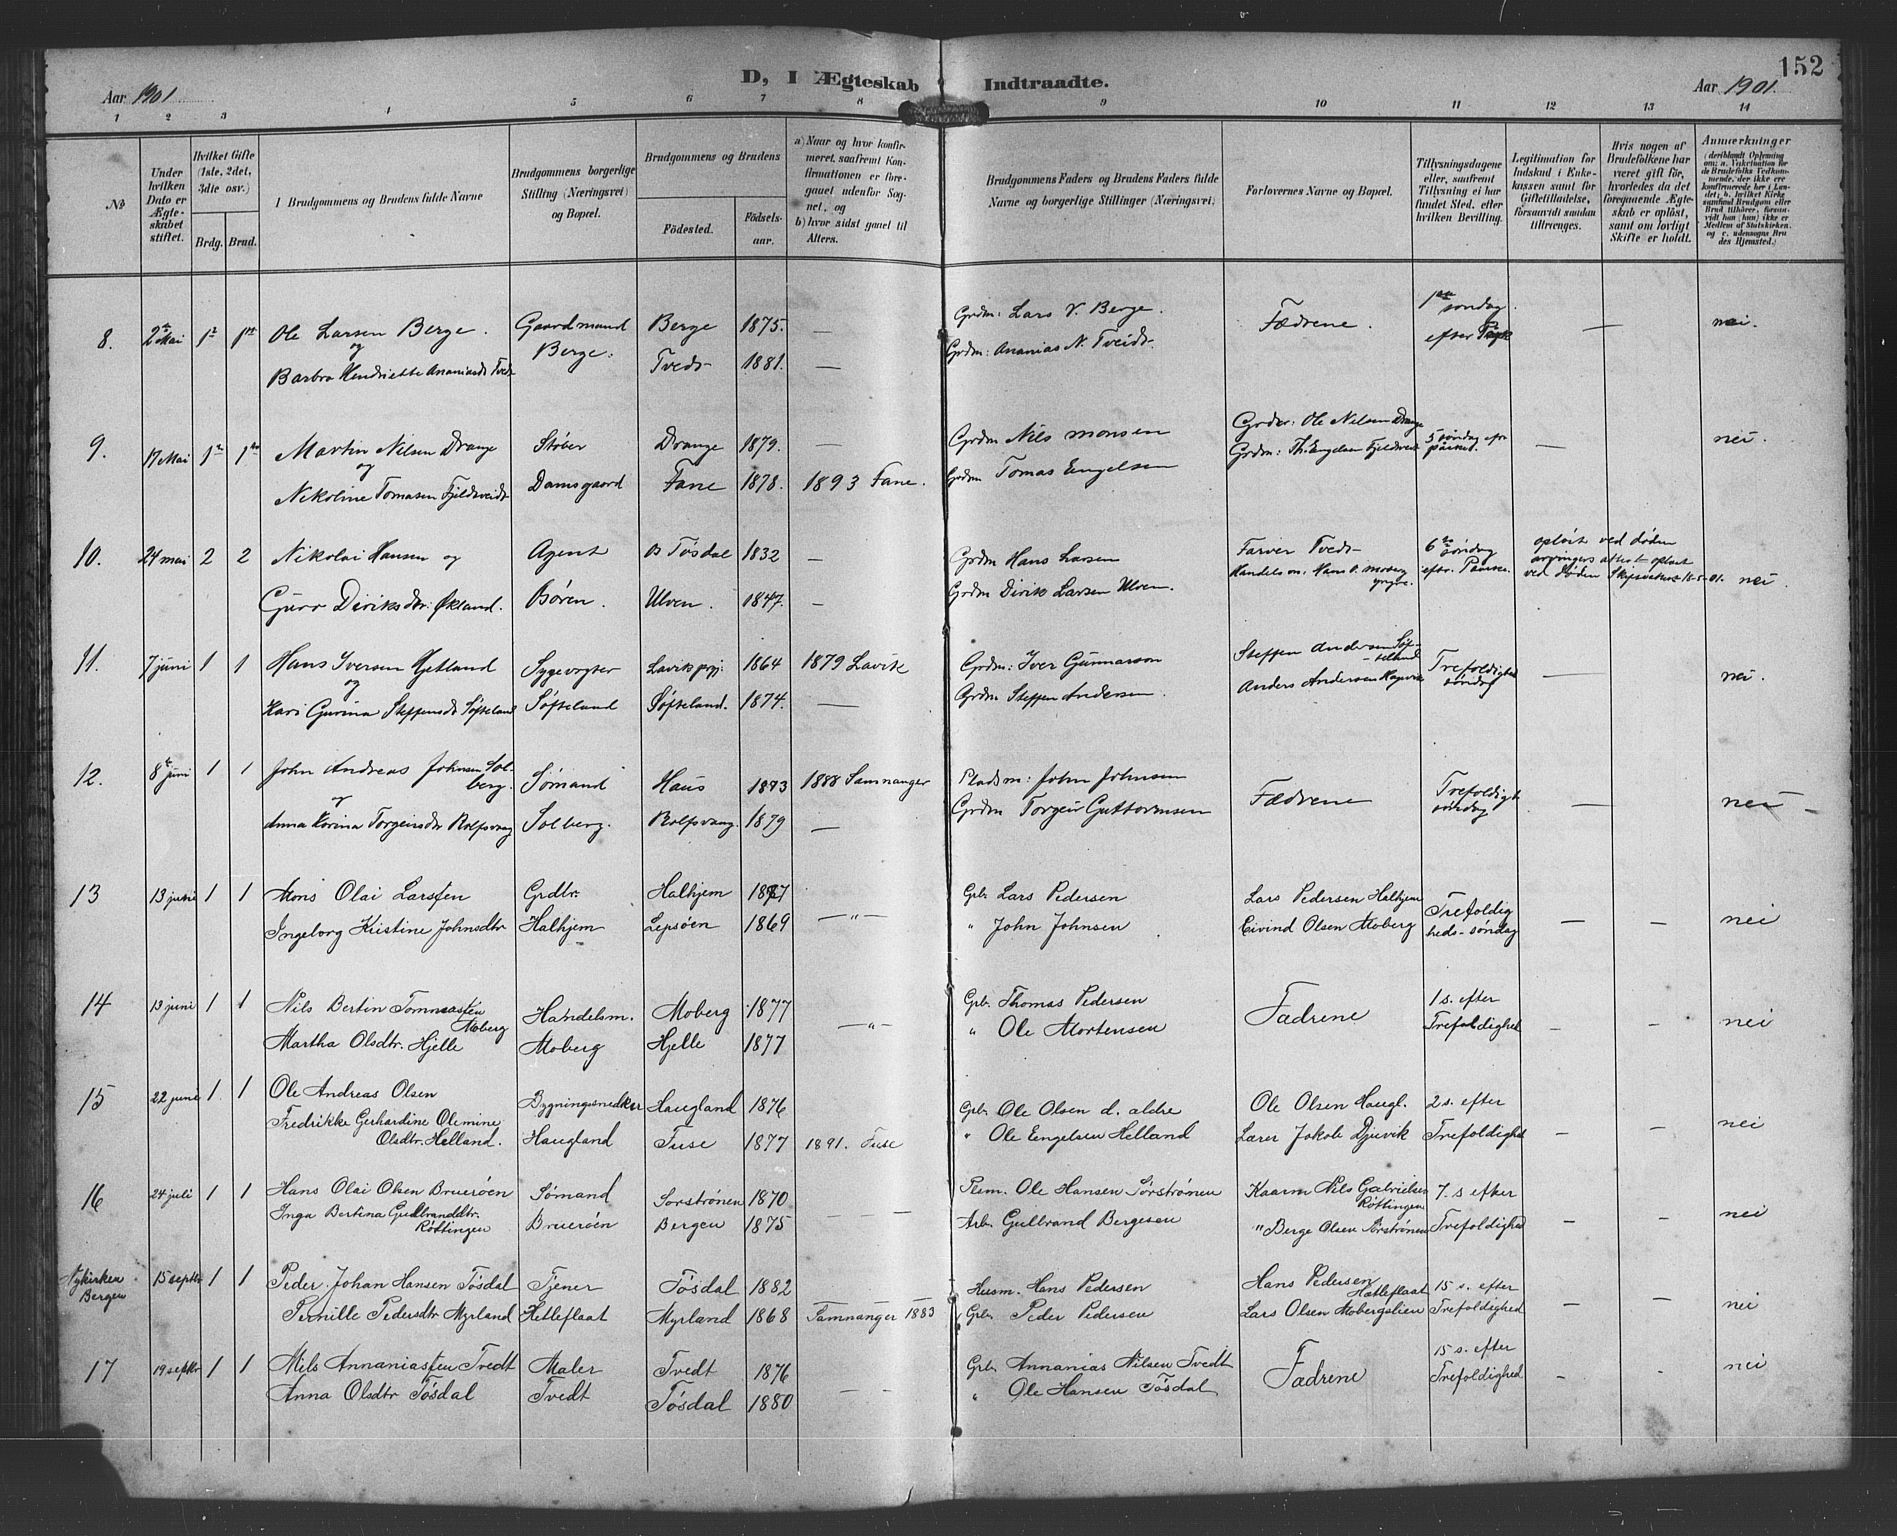 152
D, I Ægteskab Indtraadte.
Aar 1901
Aar 1901.
1 2 3 4 5 6 7 8 9 10 11 12 13 14
No
Under hvilken Dato er Ægteskabet stiftet.
Hvilket Gifte (1ste, 2det, 3die osv.)
Brdg. Brud.
I Brudgommens og Brudens fulde Navne
Brudgommens borgerlige Stilling (Næringsvei) og Bopæl.
Brudgommens og Brudens
Födested. Födselsaar.
a) Naar og hvor konfirmeret, saafremt Konfirmationen er foregaaet udenfor Sognet, og
b) hvor sidst gaaet til Alters.
Brudgommens Faders og Brudens Faders fulde Navne og borgerlige Stillinger (Næringsvei)
Forlovernes Navne og Bopæl.
Tillysningsdagene eller, saafremt Tillysning ei har fundet Sted, efter hvilken Bevilling.
Legitimation for Indskud i Enkekassen samt for Giftetilladelse, forsaavidt saadan tiltrænges.
Hvis nogen af Brudefolkene har været gift før, hvorledes da det foregaaende Ægteskab er opløst, samt om lovligt Skifte er holdt.
Anmærkninger
8. 2den Mai 1ste 1ste Ole Larsen Berge. Gaardmand Berge 1875. — Grdm: Lars V. Berge. Fædrene. 1ste søndag — nei.
og Berge. efter
Barbra Henriette Ananiasdr Tveds Tveds 1881. — Grdm: Ananias N. Tveidt.
9. 17 Mai 1ste 1ste Martin Nilsen Drange Støber Drange 1879. — Grdm Nils Monsen Grdbr: Ole Nilsen Drange 5 søndag efr — nei.
og Grdm: Th. Engelsen Fjeldsveidt påske.
Nikoline Tomasen Fjeldsveidt Damsgaard Fane 1878. 1893 Fane. Grdm Tomas Engelsen
10. 24 mai 2 2 Nikolai Hansen og Agent Tøsdal 1832 — Grdm Hans Larsen Farver Tveds 6te søndag opløst ved døden
Handelsm: Hans O. Moberg yngre. efter Paaske. ved Døden 18-5-01. nei.
Guro Diriksdtr: Økland. Børen. Ulven. 1847. — Grdm Dirik Larsen Ulven.
11. 7 juni 1 1 Hans Iversen Hetland Sygevogter Laviks pgj: 1864 1879 Lavik Grdm: Iver Gunnarson Steffen Andersen Søfteland Trefoldigheds søndag — nei.
og Anders Andersen
Kari Gurina Steffensdr Søfteland Søfteland Søfteland. 1874. — Grdm Steffen Andersen.
12. 8de juni 1 1 John Andreas Johnsen Solberg. Sømand Haus 1873 1888 Samnanger Pladsm: John Johnsen Fædrene Trefoldigh søndag — nei —
og
Anna Karina Torgeirsdtr Rolfsvaag Solberg. Rolfsvaag. 1879 — Grdm Torgeir Guttormsen
13 13 juni 1 1 Mons Olai Larssen Grdbr. Halhjem 1877 Grb. Lars Pedersen Lars Pedersen Halhjem Trefoldig
Ingeborg Kristine Johnsdtr Halhjem Lepsøen 1869 — " — " John Johnsen Eivind Olsen Moberg heds-søndag — — nei
14 13 juni 1 1 Nils Bertin Tommassen Moberg Handelsm. Moberg 1877 Grb. Thomas Pedersen Fædrene 1 s. efter
Martha Olsdtr. Hjelle Moberg Hjelle 1877 — " — " Ole Mortensen Trefoldighed — — nei
15 22 juni 1 1 Ole Andreas Olsen Bygningsnedker Haugland 1876 Grb. Ole Olsen d. ældre Ole Olsen Haugl. 2 s. efter
Fredrikke Gerhardine Olemine
Olsdtr. Helland. Haugland Fuse 1877 1891. Fuse " Ole Engelsen Helland Lærer Jakob Djuvik Trefoldighed — — nei
16 24 juli 1 1 Hans Olai Olsen Bruerøen Sømand Sorstrønen 1870 Plsm. Ole Hansen Sørstrønen Kaarm Nils Gabrielsen Røttingen 7. s efter
Inga Bertina Gudbranddtr. Røttingen Bruerøen Bergen 1875 — — Arb. Gulbrand Bergesen " Berge Olsen Sørstrønen Trefoldighed — — nei
Nykirken Bergen 15 septbr 1 1 Peder Johan Hansen Tösdal Tjener Tösdal 1882 Husm. Hans Pedersen Hans Pedersen Hætleflaat 15 s. efter
Pernille Pedersdtr Myrland Hetleflaat Myrland 1868 Samnanger 1883 Grb. Peder Pedersen Lars Olsen Mobergslien Trefoldighed — — nei
17 19 septbr 1 1 Nils Annaniassen Tvedt Maler Tvedt 1876 Grb. Annanias Nilsen Tvedt Fædrene 15 s. efter
Anna Olsdtr Tösdal Tvedt Tösdal 1880 — — " Ole Hansen Tösdal Trefoldighed - — nei